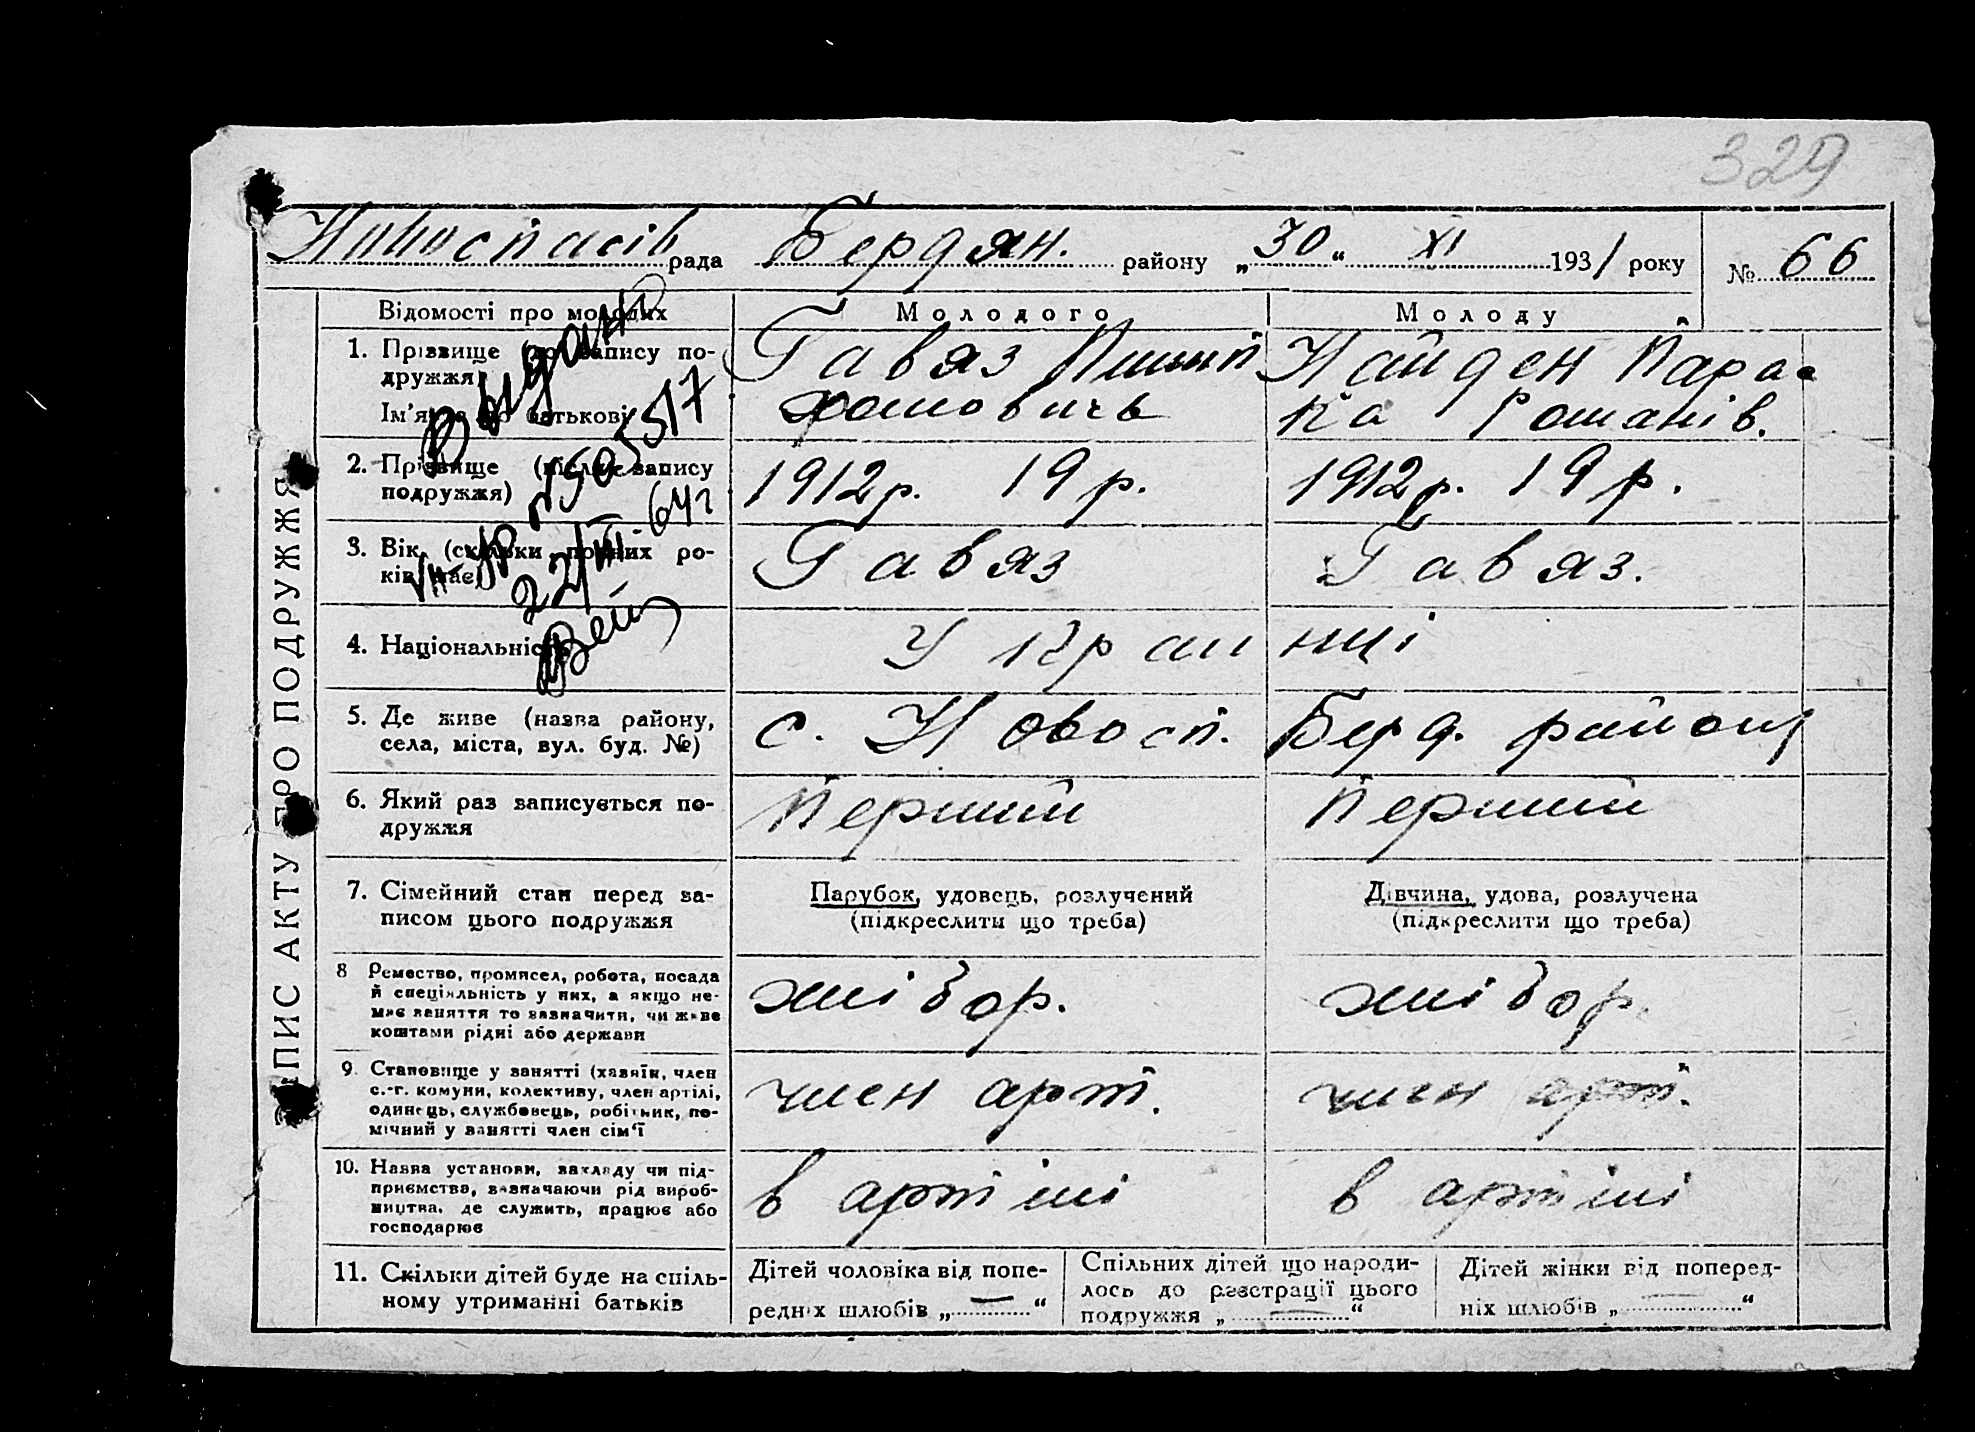 329
Новоспасів рада Бердян. району „30“ XI 1931 року № 66
ЗАПИС АКТУ ПРО ПОДРУЖЖЯ
Відомості про молодих
Молодого
Молоду
1. Прізвище (до запису по-
дружжя)
Ім'я та по батькові
Гавяз
хамовичь
Найден Парас
ка Романів.
2. Прізвище (після запису
подружжя)
1912р. 19 р.
1912р. 19 р.
3. Вік (скільки повних ро-
ків має)
Гавяз
Гавяз.
4. Національність
Украинці
5. Де живе (назва району,
села, міста, вул. буд. №)
с. Новосп. Берд. району
6. Який раз записується по-
дружжя
Перший
Перший
7. Сімейний стан перед за-
писом цього подружжя
Парубок, удовець, розлучений
(підкреслити що треба)
Дівчина, удова, розлучена
(підкреслити що треба)
8 Ремество, промисел, робота, посада
й спеціяльність у них, а якщо не-
має заняття то зазначити, чи живе
коштами рідні або держави
хлібор.
хлібор.
9. Становище у занятті (хазяїн, член
с.-г. комуни, колективу, член артілі,
одинець, службовець, робітник, по-
мічний у занятті член сім'ї
член арт.
член арт.
10. Назва установи, закладу чи під-
приємства, зазначаючи рід вироб-
ництва, де служить, працює або
господарює
в артілі
в артілі
11. Скільки дітей буде на спіль-
ному утриманні батьків
Дітей чоловіка від попе-
редніх шлюбів „—“
Спільних дітей що народи-
лось до реєстрації цього
подружжя „—“
Дітей жінки від поперед-
ніх шлюбів „—“
Выдано
22/III-64г